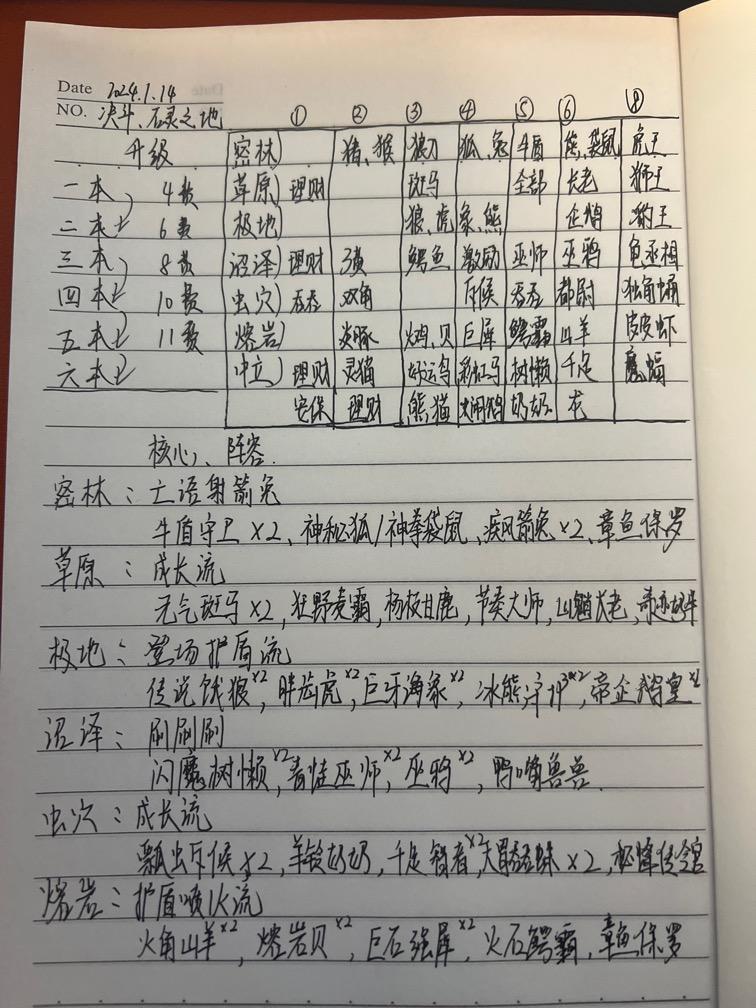 Date 2024.1.14
NO. 决斗、石灵之地 ① ② ③ ④ ⑤ ⑥ ⑧
升级 密林) 猪、猴 狼刀 狐、兔 牛盾 熊、袋鼠 虎王
一本 4费 草原) 理财 斑马 全部 大老 狮王
二本 6费 极地) 狼、虎 象、熊 企鹅 豹王
三本 8费 沼泽) 理财 鳄鱼 激励 巫师 巫鸦 龟丞相
四本 10费 虫穴) 吞吞 双角 斥候 吞吞 都尉 独角蛹
五本 11费 熔岩) 炎豚 火鸡、贝 巨犀 鳄霸 山羊 皮皮虾
六本 中立) 理财 灵猫 好运鸟 彩虹马 树懒 千足 魔蝠
安保 理财 熊猫 火闹鸡 奶奶 龙
核心、阵容.
密林：亡语射箭兔
牛盾守卫×2、神秘狐/神拳袋鼠、疾风箭兔×2、章鱼保罗
草原：成长流
元气斑马×2，狂野麦霸，杨枝甘鹿，节奏大师，山魈大老，奇迹奶牛
极地：登场护盾流
传说饿狼×2，胖齿虎×2，巨牙海象×2，冰熊守卫×2，帝企鹅皇×2
沼泽：刷刷刷
闪魔树懒×2，青蛙巫师×2，巫鸦×2，鸭嘴兽兽.
虫穴：成长流
瓢虫斥候×2，羊铃奶奶，千足智者×2，大胃吞吞蛛×2，秘蜂传令官
熔岩：护盾喷火流
火角山羊×2，熔岩贝×2，巨石强犀×2，火石鳄霸，章鱼保罗